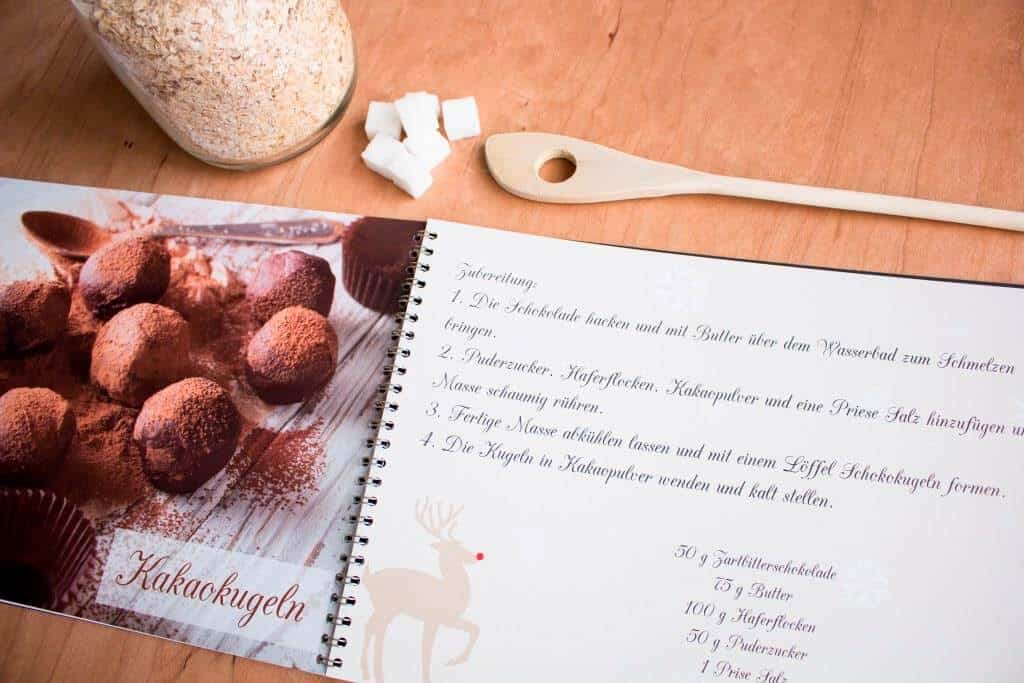 Kakaokugeln
Zubereitung:
1. Die Schokolade hacken und mit Butter über dem Wasserbad zum Schmelzen
bringen.
2. Puderzucker, Haferflocken, Kakaopulver und eine Priese Salz hinzufügen un
Masse schaumig rühren.
3. Fertige Masse abkühlen lassen und mit einem Löffel Schokokugeln formen.
4. Die Kugeln in Kakaopulver wenden und kalt stellen.
50 g Zartbitterschokolade
75 g Butter
100 g Haferflocken
50 g Puderzucker
1 Prise Salz